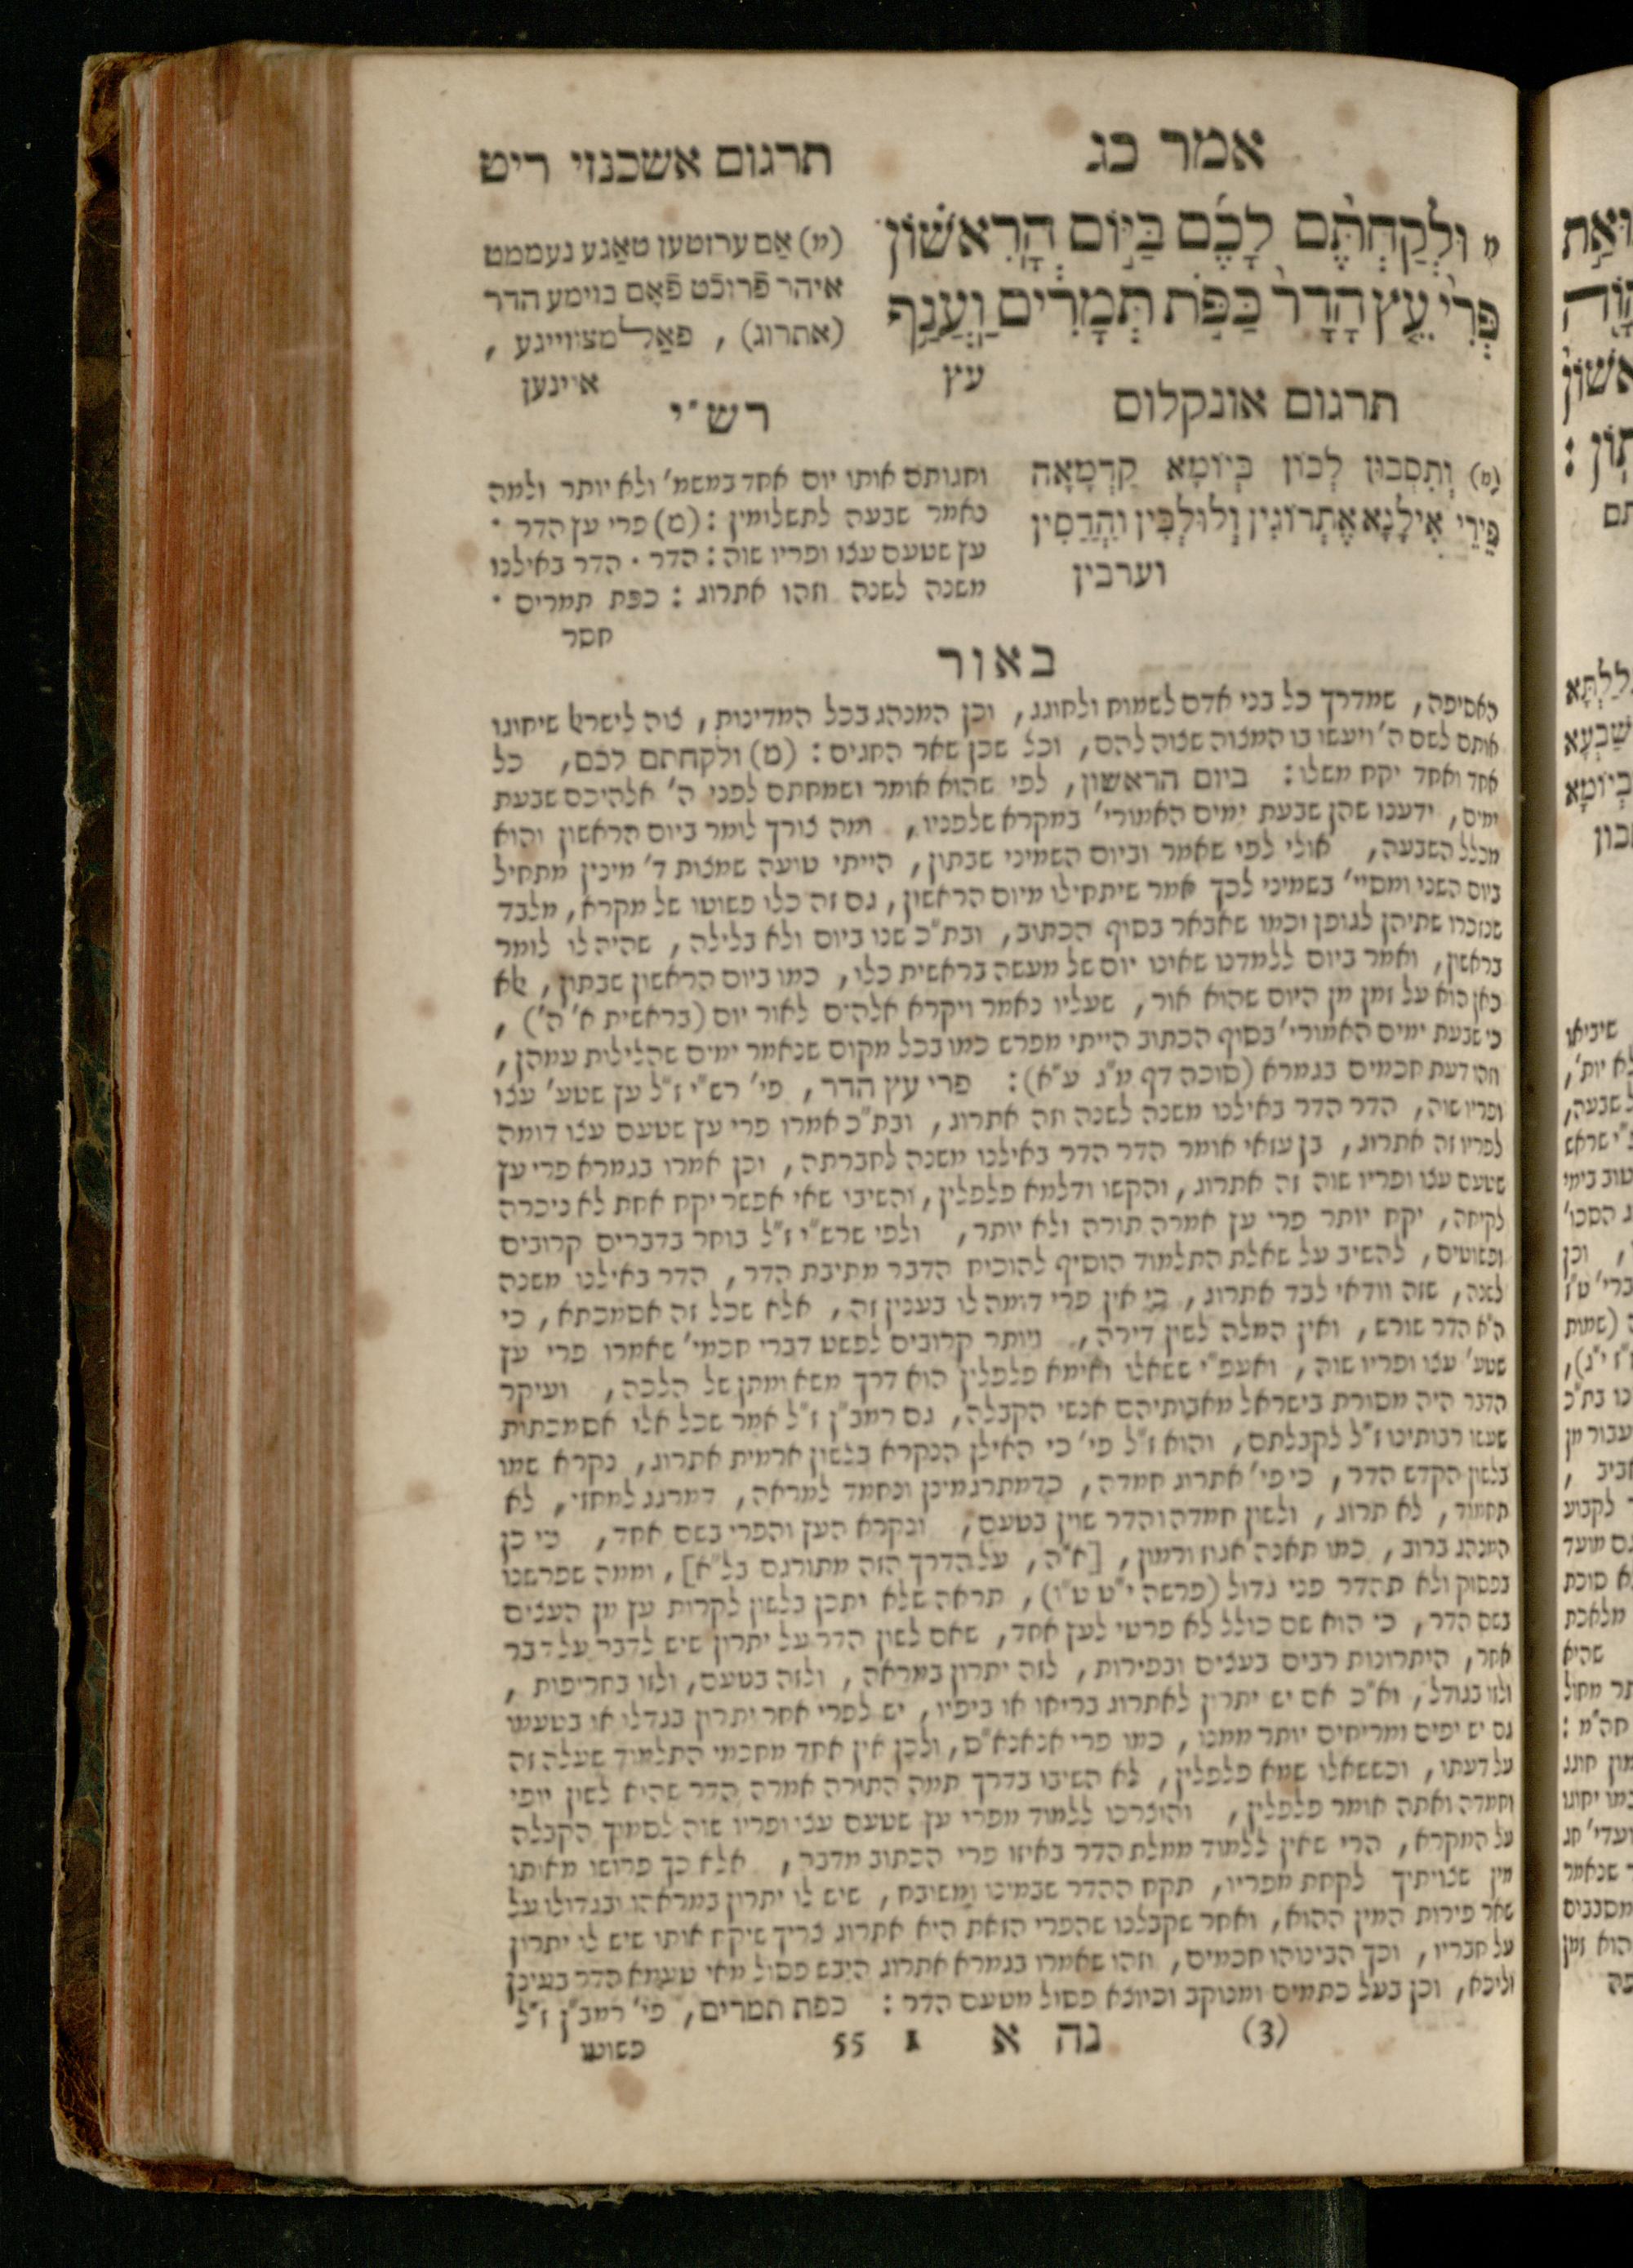 אמר כג
תרגום אשכנזי ריט
מ וּלְקַחְתֶּ֨ם לָכֶ֜ם בַּיּ֣וֹם הָרִאשׁ֗וֹן
פְּרִ֨י עֵ֤ץ הָדָר֙ כַּפֹּ֣ת תְּמָרִ֔ים וַעֲנַ֥ף
עץ
(מ) אַם ערזטען טאַגע נעממט
איהר פֿרוכֿט פֿאָם בוימע הדר
(אתרוג) , פאַלמצווייגע ,
איינען
תרגום אונקלוס
(מ) וְתִסְבוּן לְכוֹן בְּיוֹמָא קַדְמָאָה
פֵּירֵי אִילָנָא אֶתְרוֹגִין וְלוּלְבִּין וַהֲדַסִין
וערבין
רש״י
וחגותם אותו יום אחד במשמ׳ ולא יותר ולמה
נאמר שבעה לתשלומין : (מ) פרי עץ הדר ·
עץ שטעם עצו ופריו שוה : הדר · הדר באילנו
משנה לשנה וזהו אתרוג : כפת תמרים ·
חסר
באור
האסיפה, שמדרך כל בני אדם לשמוח ולחוגג, וכן המנהג בכל המדינות, צוה לישראל שיחוגו
אותם לשם ה׳ ויעשו בו המצוה שצוה להם, וכל שכן שאר החגים : (מ) ולקחתם לכם, כל
אחד ואחד יקח משלו : ביום הראשון, לפי שהוא אומר ושמחתם לפני ה׳ אלהיכם שבעת
ימים, ידענו שהן שבעת ימים האמורי׳ במקרא שלפניו, ומה צורך לומר ביום הראשון והוא
מכלל השבעה, אולי לפי שאמר וביום השמיני שבתון, הייתי טועה שמצות ד׳ מינין מתחיל
ביום השני ומסיי׳ בשמיני לכך אמר שיתחילו מיום הראשון, גם זה כלו פשוטו של מקרא, מלבד
שנזכרו שתיהן לגופן וכמו שאבאר בסוף הכתוב, ובת״כ שנו ביום ולא בלילה, שהיה לו לומר
בראשון, ואמר ביום ללמדנו שאינו יום של מעשה בראשית כלו, כמו ביום הראשון שבתון, אלא
כאן הוא על זמן מן היום שהוא אור, שעליו נאמר ויקרא אלהים לאור יום (בראשית א׳ ה׳) ,
כי שבעת ימים האמורי׳ בסוף הכתוב הייתי מפרש כמו בכל מקום שנאמר ימים שהלילות עמהן,
וזהו דעת חכמים בגמרא (סוכה דף מ״ג ע״א) : פרי עץ הדר, פי׳ רש״י ז״ל עץ שטע׳ עצו
ופריו שוה, הדר הדר באילנו משנה לשנה וזה אתרוג, ובת״כ אמרו פרי עץ שטעם עצו דומה
לפריו זה אתרוג, בן עזאי אומר הדר הדר באילנו משנה לחברתה, וכן אמרו בגמרא פרי עץ
שטעם עצו ופריו שוה זה אתרוג, והקשו ודלמא פלפלין, והשיבו שאי אפשר יקח אחת לא ניכרה
לקיחה, יקח יותר פרי עץ אמרה תורה ולא יותר, ולפי שרש״י ז״ל בוחר בדברים קרובים
ופשוטים, להשיב על שאלת התלמוד הוסיף להוכיח הדבר מתיבת הדר, הדר באילנו משנה
לשנה, שזה וודאי לבד אתרוג, כי אין פרי דומה לו בענין זה, אלא שכל זה אסמכתא, כי
ה״א הדר שורש, ואין המלה לשון דירה, ויותר קרובים לפשט דברי חכמי׳ שאמרו פרי עץ
שטע׳ עצו ופריו שוה, ואעפ״י ששאלו ואימא פלפלין הוא דרך משא ומתן של הלכה, ועיקר
הדבר היה מסורת בישראל מאבותיהם אנשי הקבלה, גם רמב״ן ז״ל אמר שכל אלו אסמכתות
שעשו רבותינו ז״ל לקבלתם, והוא ז״ל פי׳ כי האילן הנקרא בלשון ארמית אתרוג, נקרא שמו
בלשון הקדש הדר, כי פי׳ אתרוג חמדה, כדמתרגמינן ונחמד למראה, דמרגג למחזי, לא
תחמוד, לא תרוג, ולשון חמדה והדר שוין בטעם, ונקרא העץ והפרי בשם אחד, כי כן
המנהג ברוב, כמו תאנה אגוז ורמון, [א״ה, על הדרך הזה מתורגם בל״א], וממה שפרשנו
בפסוק ולא תהדר פני גדול (פרשה י״ט ט״ו), תראה שלא יתכן בלשון לקרות עץ מן העצים
בשם הדר, כי הוא שם כולל לא פרטי לעץ אחד, שאם לשון הדר על יתרון שיש לדבר על דבר
אחר, היתרונות רבים בעצים ובפירות, לזה יתרון במראה, ולזה בטעם, ולזו בחריפות,
ולזו בגודל, וא״כ אם יש יתרון לאתרוג בריאו או ביפיו, יש לפרי אחר יתרון בגדלו או בטעמו
גם יש יפים ומריחים יותר ממנו, כמו פרי אנאנא״ס, ולכן אין אחד מחכמי התלמוד שעלה זה
על דעתו, וכששאלו שמא פלפלין, לא השיבו בדרך תמה התורה אמרה הדר שהיא לשון יופי
וחמדה ואתה אומר פלפלין, והוצרכו ללמוד מפרי עץ שטעם עצו ופריו שוה לסמוך הקבלה
על המקרא, הרי שאין ללמוד ממלת הדר באיזו פרי הכתוב מדבר, אלא כך פרושו מאותו
מין שצויתיך לקחת מפריו, תקח ההדר שבמינו ומשובח, שיש לו יתרון במראהו ובגדולו על
שאר פירות המין ההוא, ואחר שקבלנו שהפרי הזאת היא אתרוג צריך שיקח אותו שיש לו יתרון
על חבריו, וכך הבינוהו חכמים, וזהו שאמרו בגמרא אתרוג היבש פסול מאי טעמא הדר בעינן
וליכא, וכן בעל כתמים ומנוקב וכיוצא פסול מטעם הדר : כפת תמרים, פי׳ רמב״ן ז״ל
(3) נה א 1 55 פשוטו